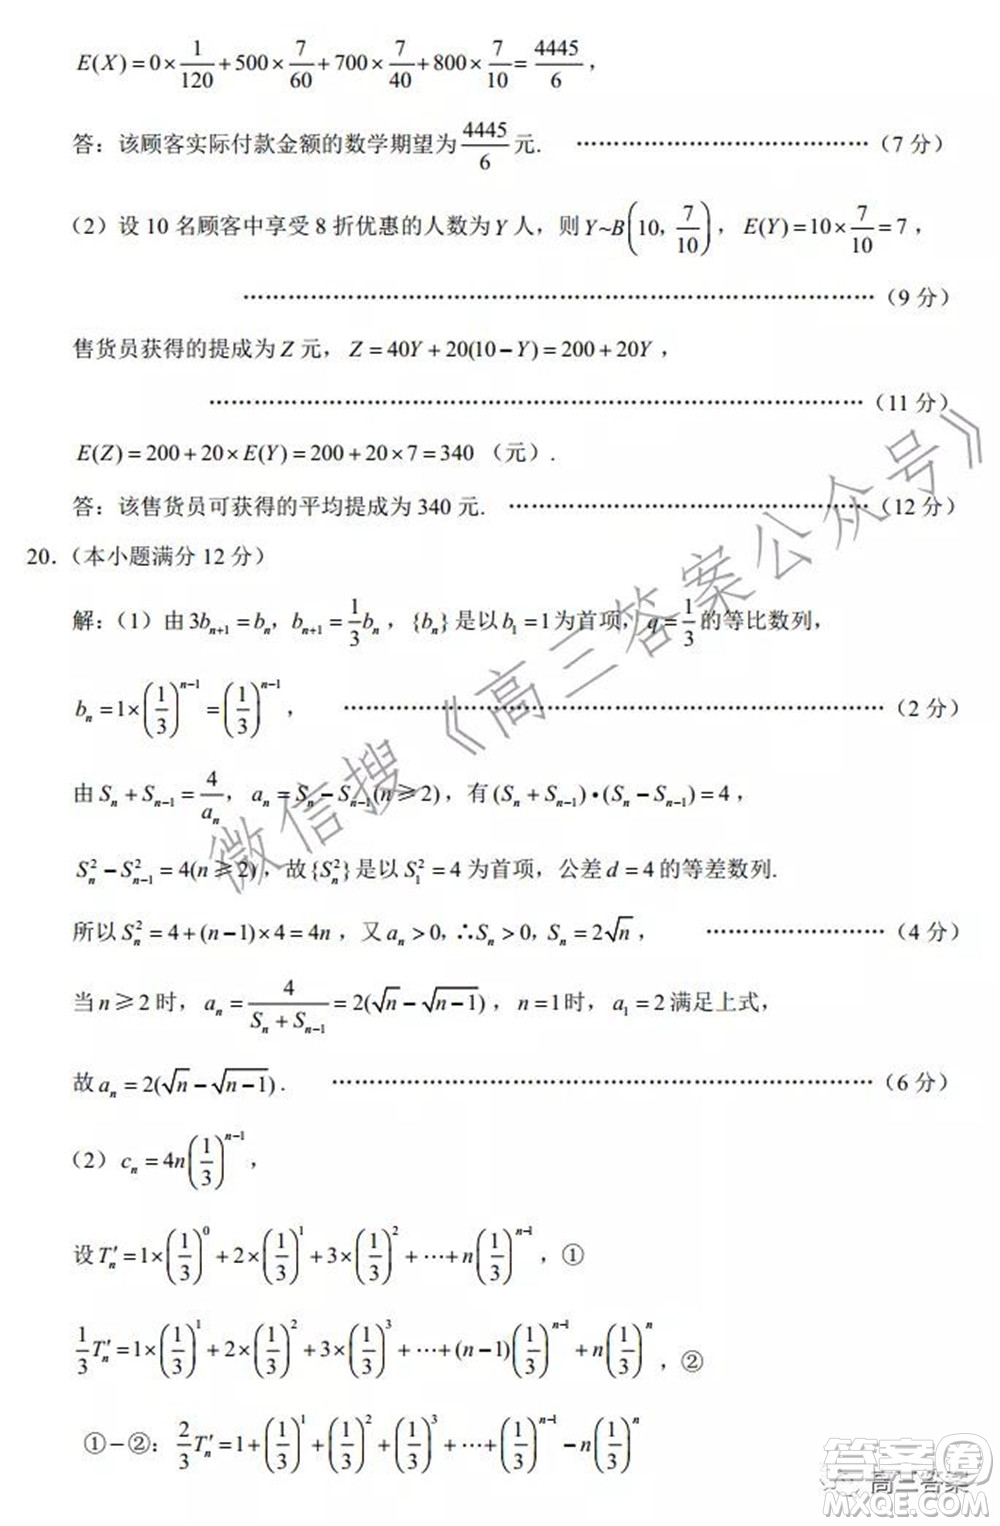 E(X)=0×1/120+500×7/60+700×7/40+800×7/10=4445/6，
答：该顾客实际付款金额的数学期望为4445/6元. ……………………………………（7 分）
（2）设 10 名顾客中享受 8 折优惠的人数为 Y 人，则 Y~B(10, 7/10)，E(Y)=10×7/10=7，
……………………………………………………………………（9 分）
售货员获得的提成为 Z 元，Z=40Y+20(10−Y)=200+20Y，
……………………………………………………………………（11 分）
E(Z)=200+20×E(Y)=200+20×7=340（元）.
答：该售货员可获得的平均提成为 340 元. ……………………………………（12 分）
20.（本小题满分 12 分）
解：（1）由 3bₙ₊₁=bₙ，bₙ₊₁=1/3 bₙ，{bₙ} 是以 b₁=1 为首项，q=1/3 的等比数列，
bₙ=1×(1/3)ⁿ⁻¹=(1/3)ⁿ⁻¹， ……………………………………（2 分）
由 Sₙ+Sₙ₋₁=4/aₙ，aₙ=Sₙ−Sₙ₋₁(n≥2)，有 (Sₙ+Sₙ₋₁)•(Sₙ−Sₙ₋₁)=4，
Sₙ²−Sₙ₋₁²=4(n≥2)，故{Sₙ²}是以 S₁²=4 为首项，公差 d=4 的等差数列.
所以 Sₙ²=4+(n−1)×4=4n，又 aₙ>0，∴Sₙ>0，Sₙ=2√n， ………………（4 分）
当 n≥2 时，aₙ=4/(Sₙ+Sₙ₋₁)=2(√n−√(n−1))，n=1时，a₁=2 满足上式，
故 aₙ=2(√n−√(n−1)). ……………………………………（6 分）
（2）cₙ=4n(1/3)ⁿ⁻¹，
设 Tₙ′=1×(1/3)⁰+2×(1/3)¹+3×(1/3)²+⋯+n(1/3)ⁿ⁻¹，①
1/3 Tₙ′=1×(1/3)¹+2×(1/3)²+3×(1/3)³+⋯+(n−1)(1/3)ⁿ⁻¹+n(1/3)ⁿ，②
①−②：2/3 Tₙ′=1+(1/3)¹+(1/3)²+(1/3)³+⋯+(1/3)ⁿ⁻¹−n(1/3)ⁿ
微信搜《高三答案公众号》
高三答案
答案圈
MXQE.COM